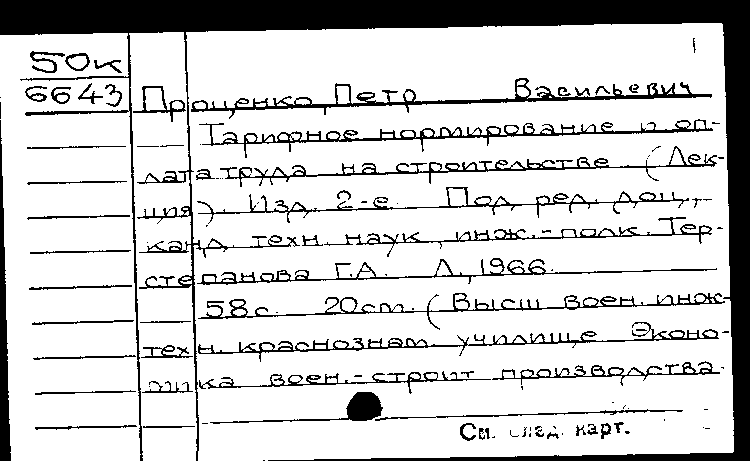 50к
6643
Проценко, Петр Васильевич
Тарифное нормирование и оп-
лата труда на строительстве (Лек-
ция). Изд. 2-е. Под ред. доц.,
канд. техн. наук, инж.-полк. Тер-
степанова Г.А. Л., 1966.
58с. 20см. (Высш воен. инж-
техн. краснознам. училище Эконо-
мика воен.-строит производства.
См. след. карт.